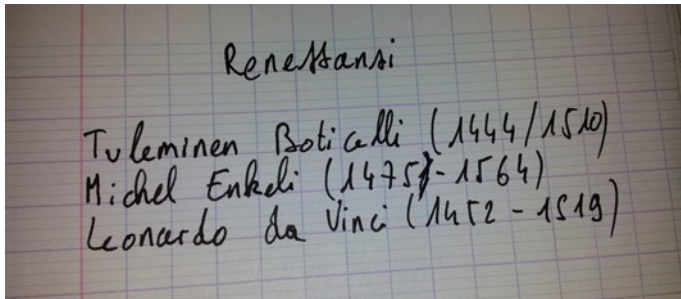 Renessansi
Tuleminen Boticelli (1444/1510)
Michel Enkeli (1475)-1564)
Leonardo da Vinci (1452-1519)